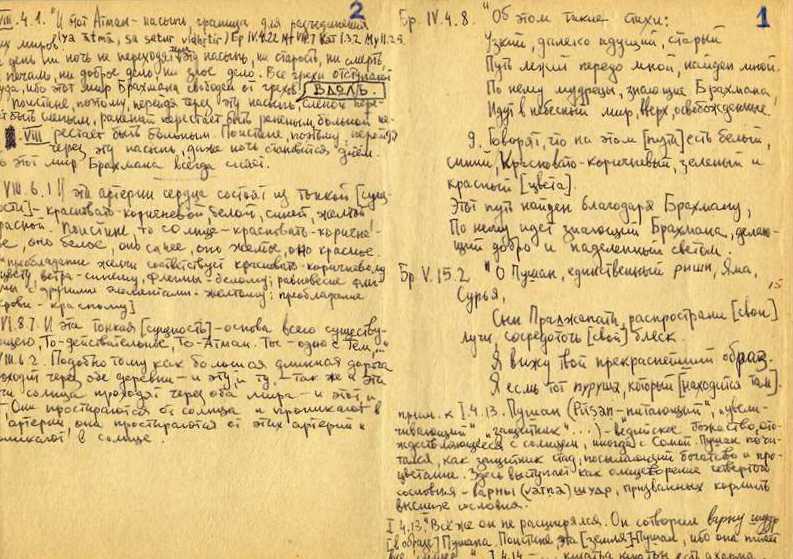 2
VIII.4.1. "И этот Атман - насыпь, граница для разъединения
этих миров /ya ātmā, sa setur vidhṛtir/ Бр IV.4.22
день ни ночь не переходят эту насыпь, ни старость, ни смерть,
ни печаль, ни доброе дело, ни злое дело. Все грехи отступают
ибо этот мир Брахмана свободен от грехов. ВДОЛЬ.
Поистине, поэтому, перейдя через эту насыпь, слепой пере-
быть слепым, раненый перестает быть раненым, больной пе-
VIII рестает быть больным. Поистине, поэтому, перейдя
через эту насыпь, даже ночь становится днем.
этот мир Брахмана всегда сияет.
VIII.6.1 И эти артерии сердца состоят из тонкой [сущ-
ности] - красновато-коричневой, белой, синей, желтой
красной. Поистине, то солнце - красновато-коричне-
вое, оно белое, оно синее, оно желтое, оно красное.
преобладание желчи соответствует красновато-коричневому
цвету, ветра - синему, флегмы - белому; равновесие флег-
мы с другими элементами - желтому; преобладание
крови - красному]
VI.8.7. И эта тонкая [сущность] - основа всего существу-
ющего, То - действительное, То - Атман. Ты - одно с Тем,..."
VIII.6.2. Подобно тому как большая длинная дорога
проходит через две деревни - и эту, и ту, - так же и эти
лучи солнца проходят через оба мира - и этот, и
Они простираются от солнца и проникают в
артерии, они простираются от этих артерий и
проникают в солнце.
1
Бр. IV.4.8. "Об этом такие стихи:
Узкий, далеко идущий, старый
Путь лежит передо мной, найден мной.
По нему мудрецы, знающие Брахмана,
Идут в небесный мир, вверх, освобожденные.
9. Говорят, что на этом [пути] есть белый,
синий, красновато-коричневый, зеленый и
красный [цвета].
Этот путь найден благодаря Брахману,
По нему идет знающий Брахмана, делаю-
щий добро и наделенный светом.
Бр V.15.2 "О Пушан, единственный риши, Яма,
Сурья,
15
Сын Праджапати, распространи [свои]
лучи, сосредоточь [свой] блеск.
Я вижу твой прекраснейший образ.
Я есмь тот пуруша, который [находится там].
прим. к I.4.13. Пушан (Pūṣan - "питающий", "увели-
чивающий", "защитник"...) - ведийское божество, ото-
ждествляющееся с солнцем, иногда с Сомой. Пушан почи-
тался, как защитник стад, посылающий богатство и про-
цветание. Здесь выступает как олицетворение четвертого
сословия - варны (varṇa) шудр, призванных кормить
высшие сословия.
I 4.13. "Все же он не расширялся. Он сотворил варну шудр
[в образе] Пушана. Поистине, эта [земля] - Пушан, ибо она питает
I.4.14